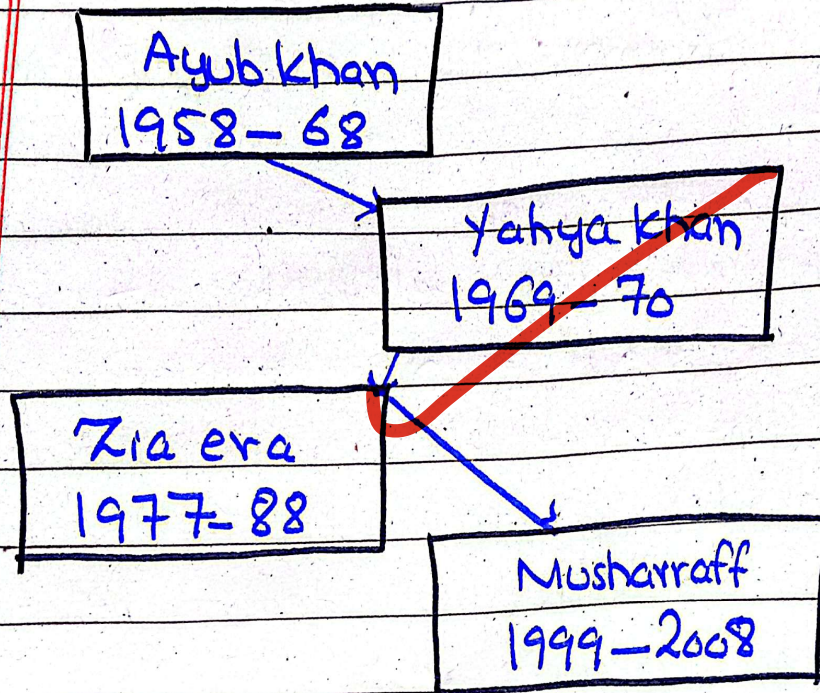 Ayub khan
1958-68
Yahya khan
1969-70
Zia era
1977-88
Musharraff
1999-2008